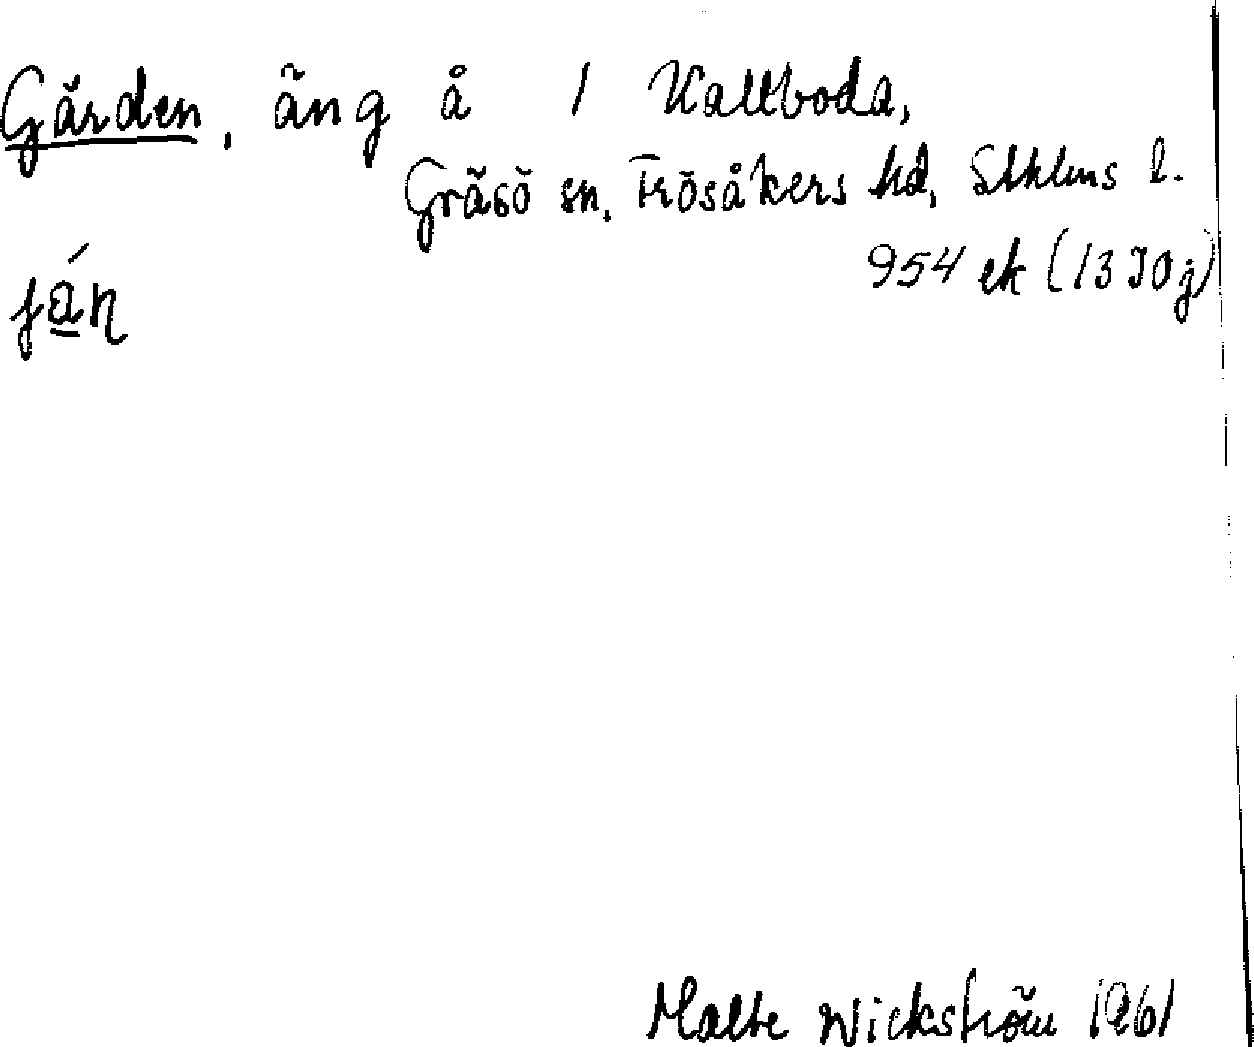 Gärden, äng å 1 Kallboda,
Gräsö sn, Frösåkers hd, Sthlms l.
954 ek (13 I 0 j)
Malte Wickström 1961